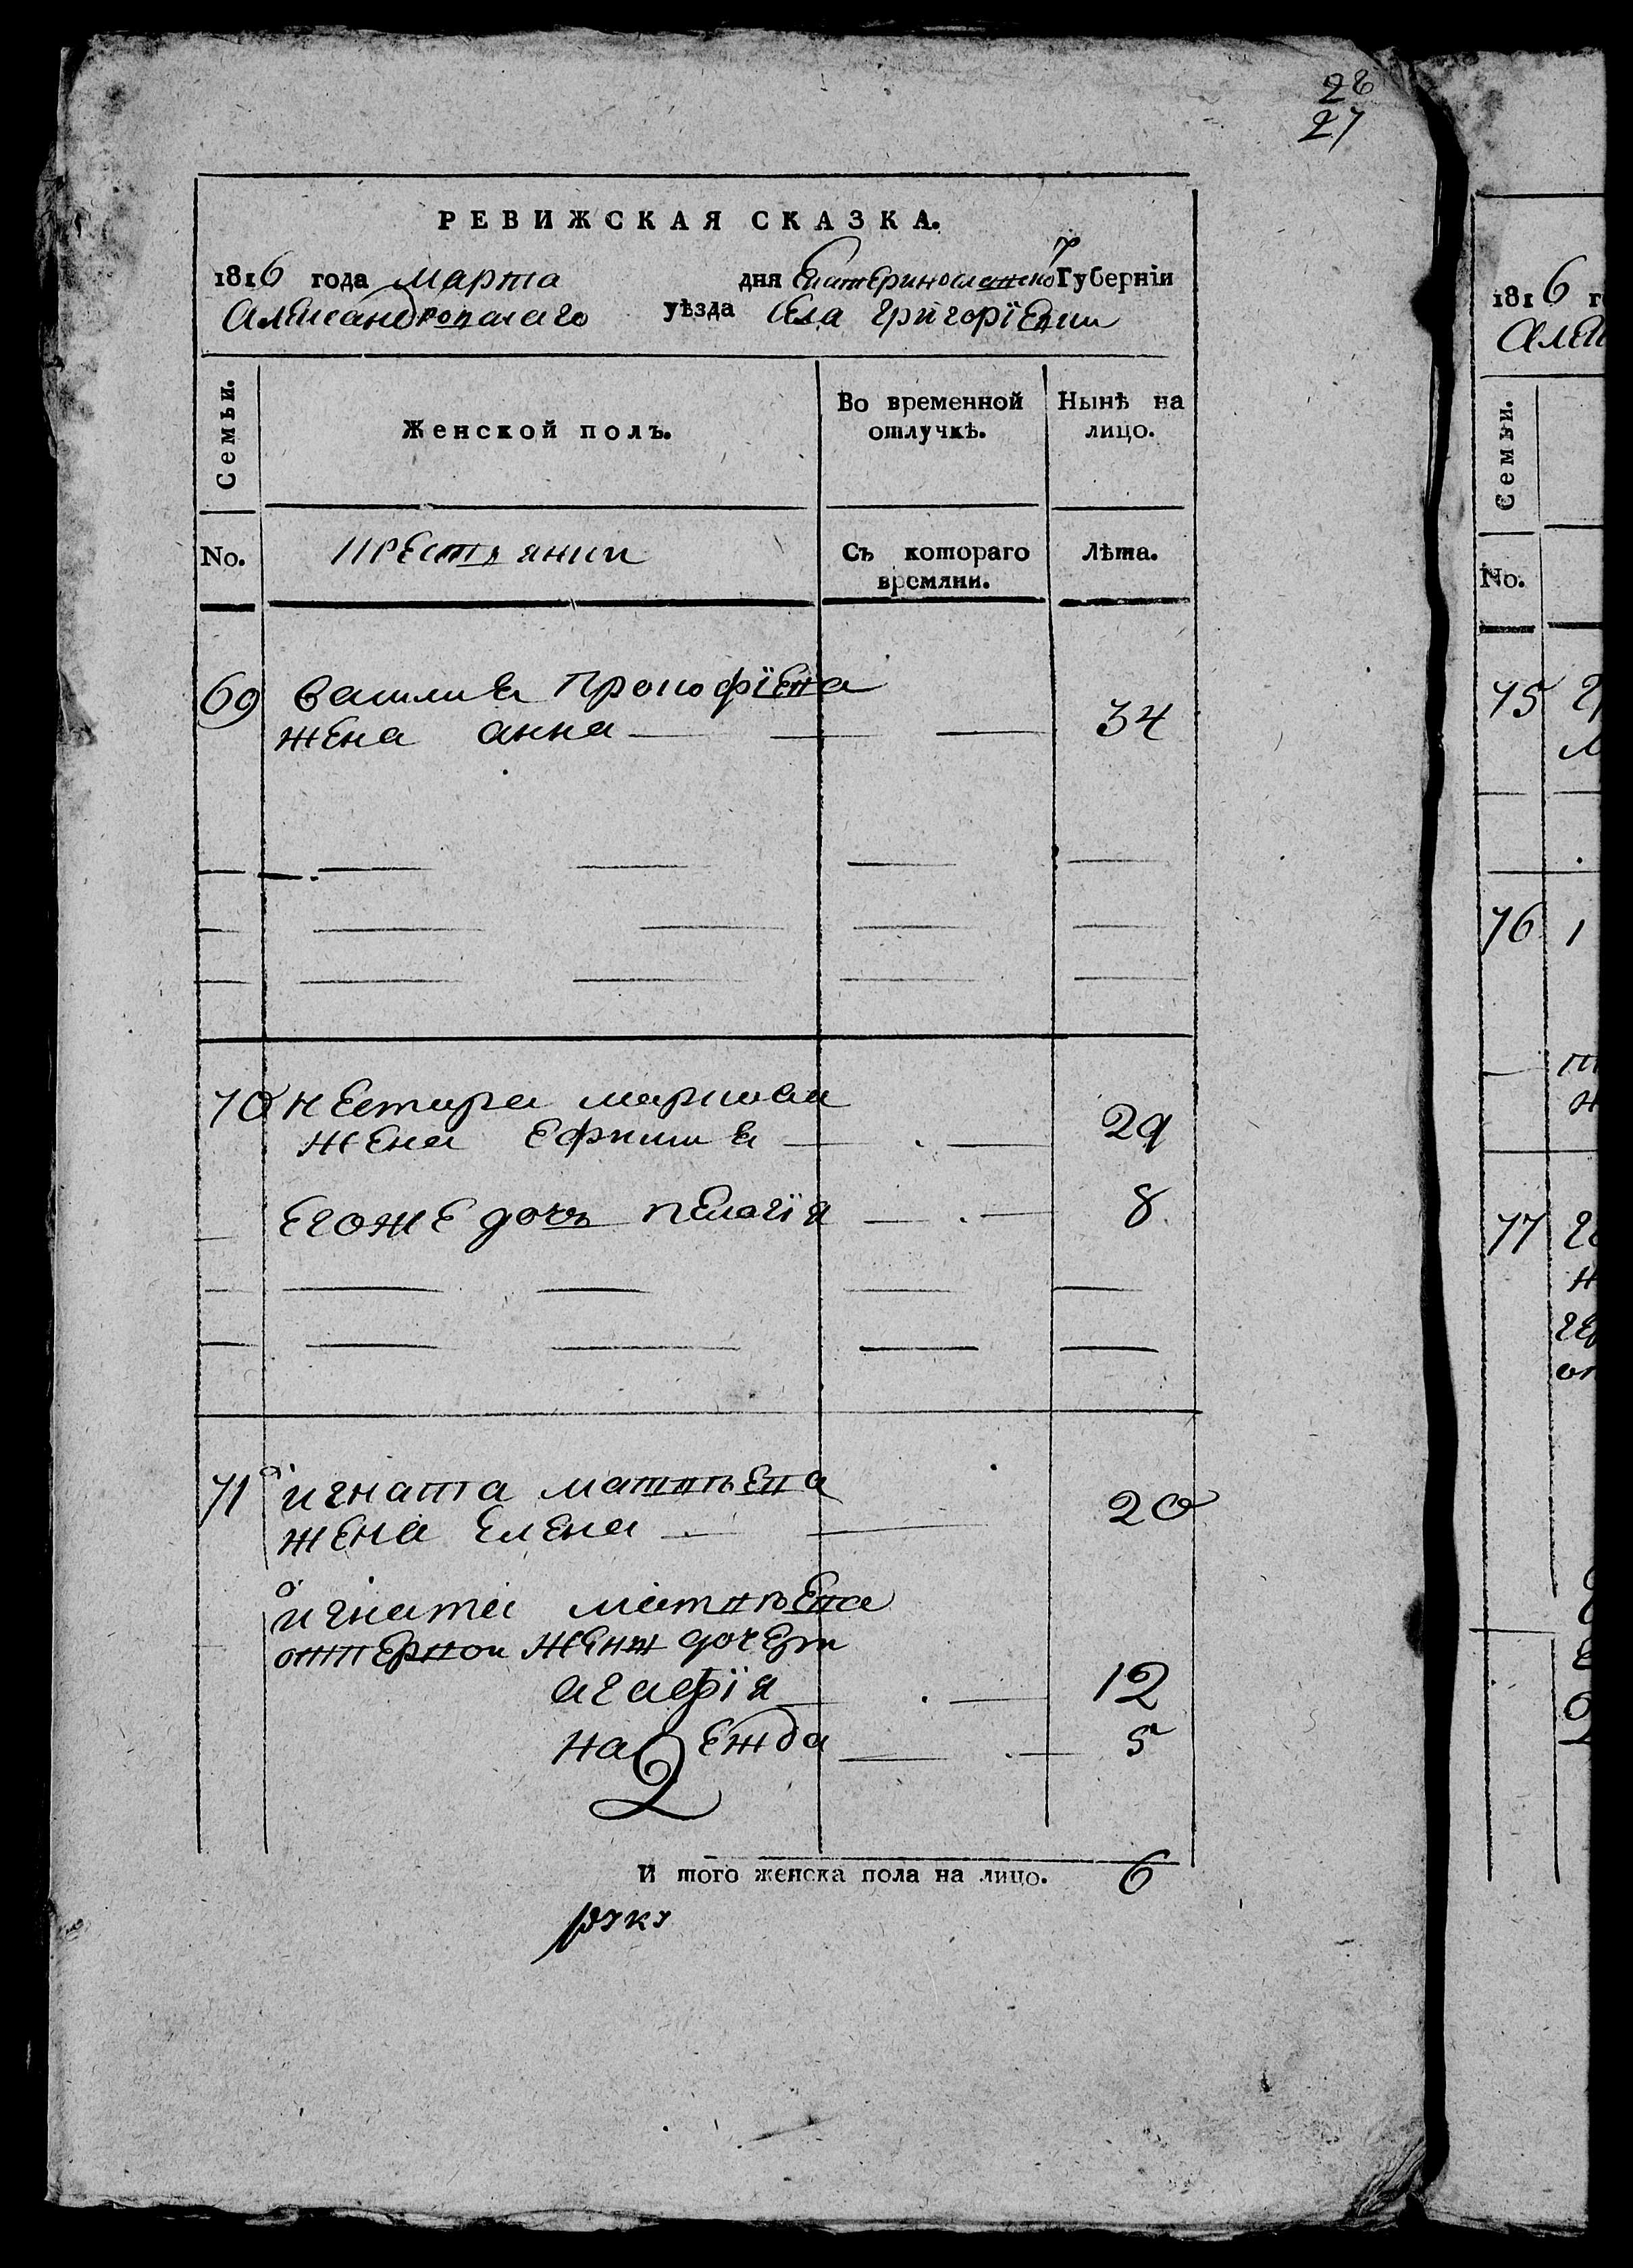 28
27
РЕВИЖСКАЯ СКАЗКА.
1816 года Марта дня Екатеринославской Губерніи
Александровскаго уѣзда села Григорїевки
Семьи. Женской полъ. Во временной отлучкѣ. Нынѣ на лицо.
No. крестьянки Съ котораго времяни. Лѣта.
69 василия Прокофїева
жена анна 34
70 нестира
жена 29
егоже дочь пелагїя 8
71 игната матвѣева
жена Елена 20
игната матвѣева
отпервои жены дочери
агафїя 12
надежда 5
2
И того женска пола на лицо. 6
руку
1816
Семьи.
No.
75
76
77